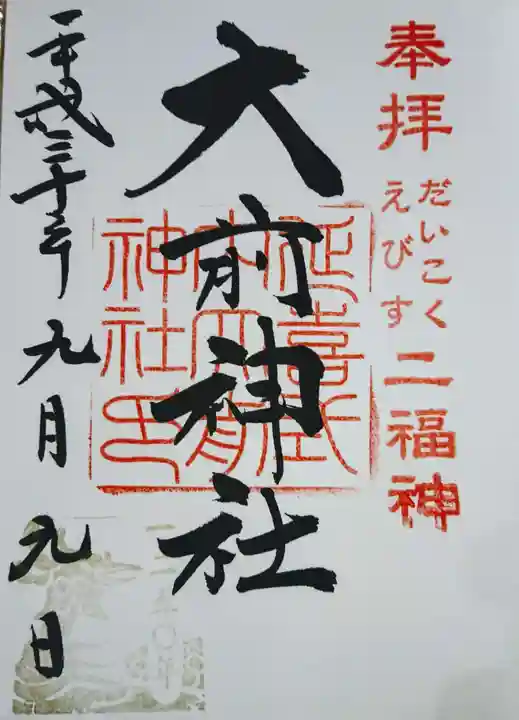 奉拝
だいこく
えびす
二福神
大前神社
延喜式
内大前
神社印
平成三十年九月九日